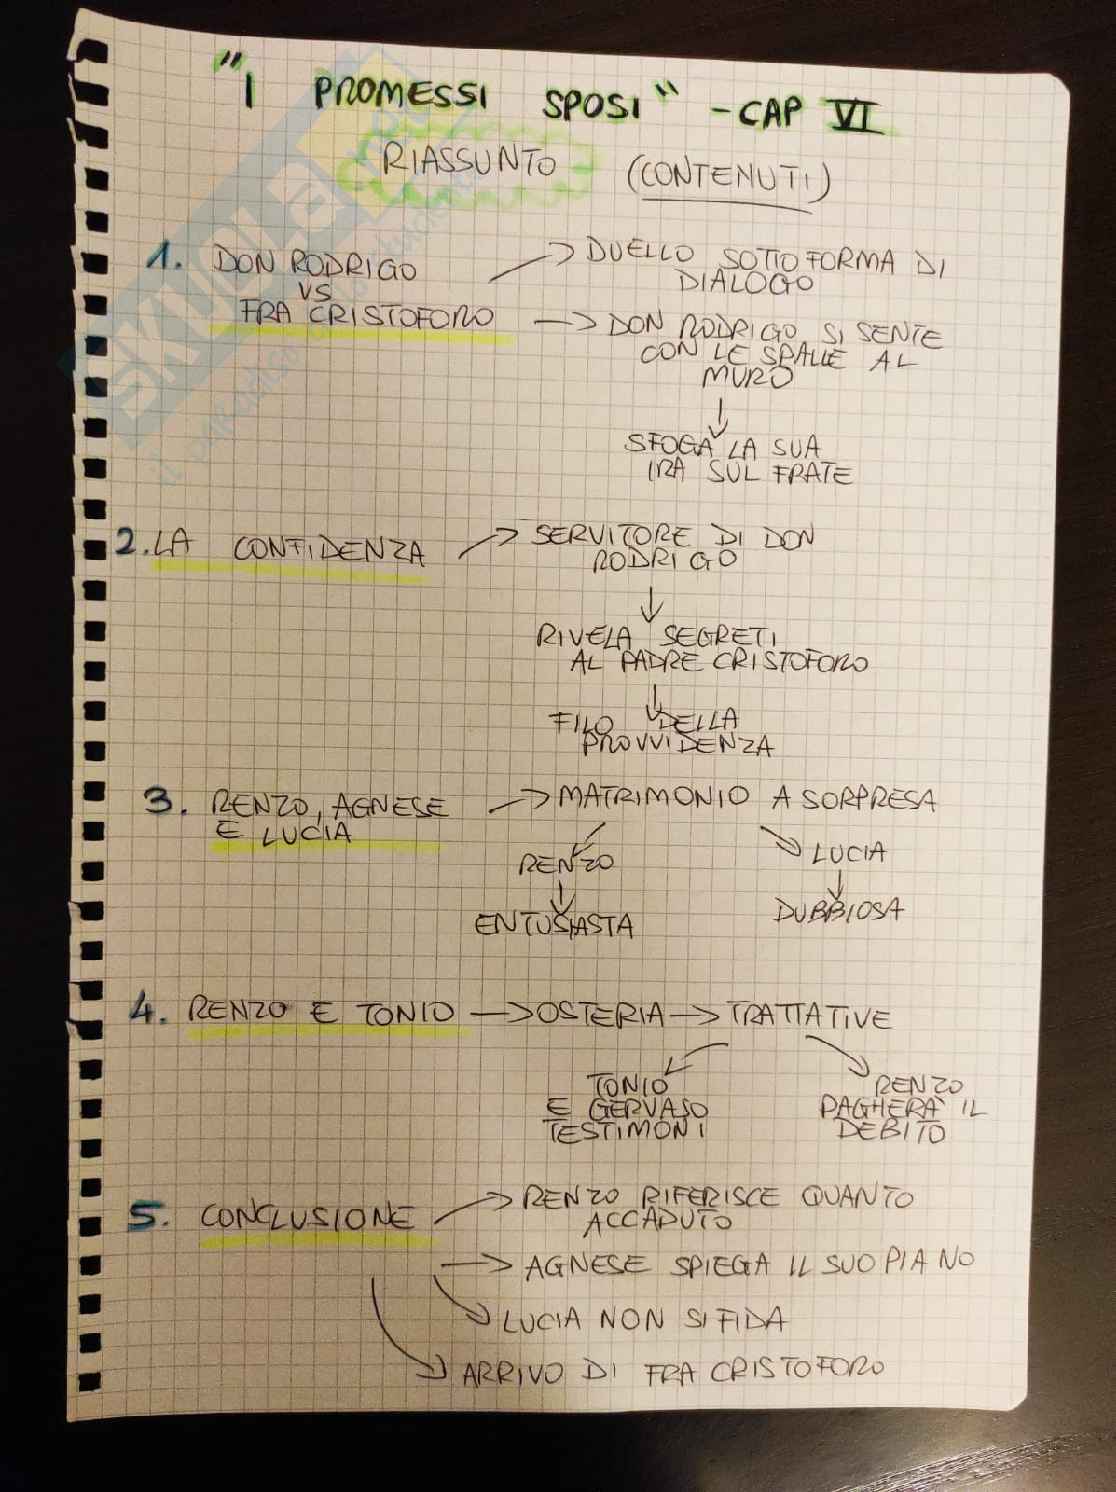 "I PROMESSI SPOSI" - CAP VI
RIASSUNTO (CONTENUTI)
1. DON RODRIGO
VS
FRA CRISTOFORO
→ DUELLO SOTTO FORMA DI
DIALOGO
→ DON RODRIGO SI SENTE
CON LE SPALLE AL
MURO
SFOGA LA SUA
IRA SUL FRATE
2. LA CONFIDENZA → SERVITORE DI DON
RODRIGO
RIVELA SEGRETI
AL PADRE CRISTOFORO
FILO DELLA
PROVVIDENZA
3. RENZO, AGNESE
E LUCIA
→ MATRIMONIO A SORPRESA
RENZO
ENTUSIASTA
LUCIA
DUBBIOSA
4. RENZO E TONIO → OSTERIA → TRATTATIVE
TONIO
E GERVASO
TESTIMONI
RENZO
PAGHERÀ IL
DEBITO
5. CONCLUSIONE → RENZO RIFERISCE QUANTO
ACCADUTO
→ AGNESE SPIEGA IL SUO PIANO
LUCIA NON SI FIDA
ARRIVO DI FRA CRISTOFORO